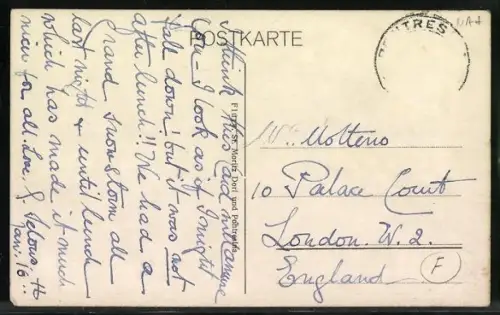 POSTKARTE
I think this card will amuse
you – I look as if I might
fall down! but it was not
after lunch!! We had a
grand snowstorm all
last night & until lunch
which has made it much
nicer for all. Love
Jan. 16
St. Moritz Dorf und Pontresina
PONTRES
Molteno
10 Palace Court
London. W. 2.
England
F